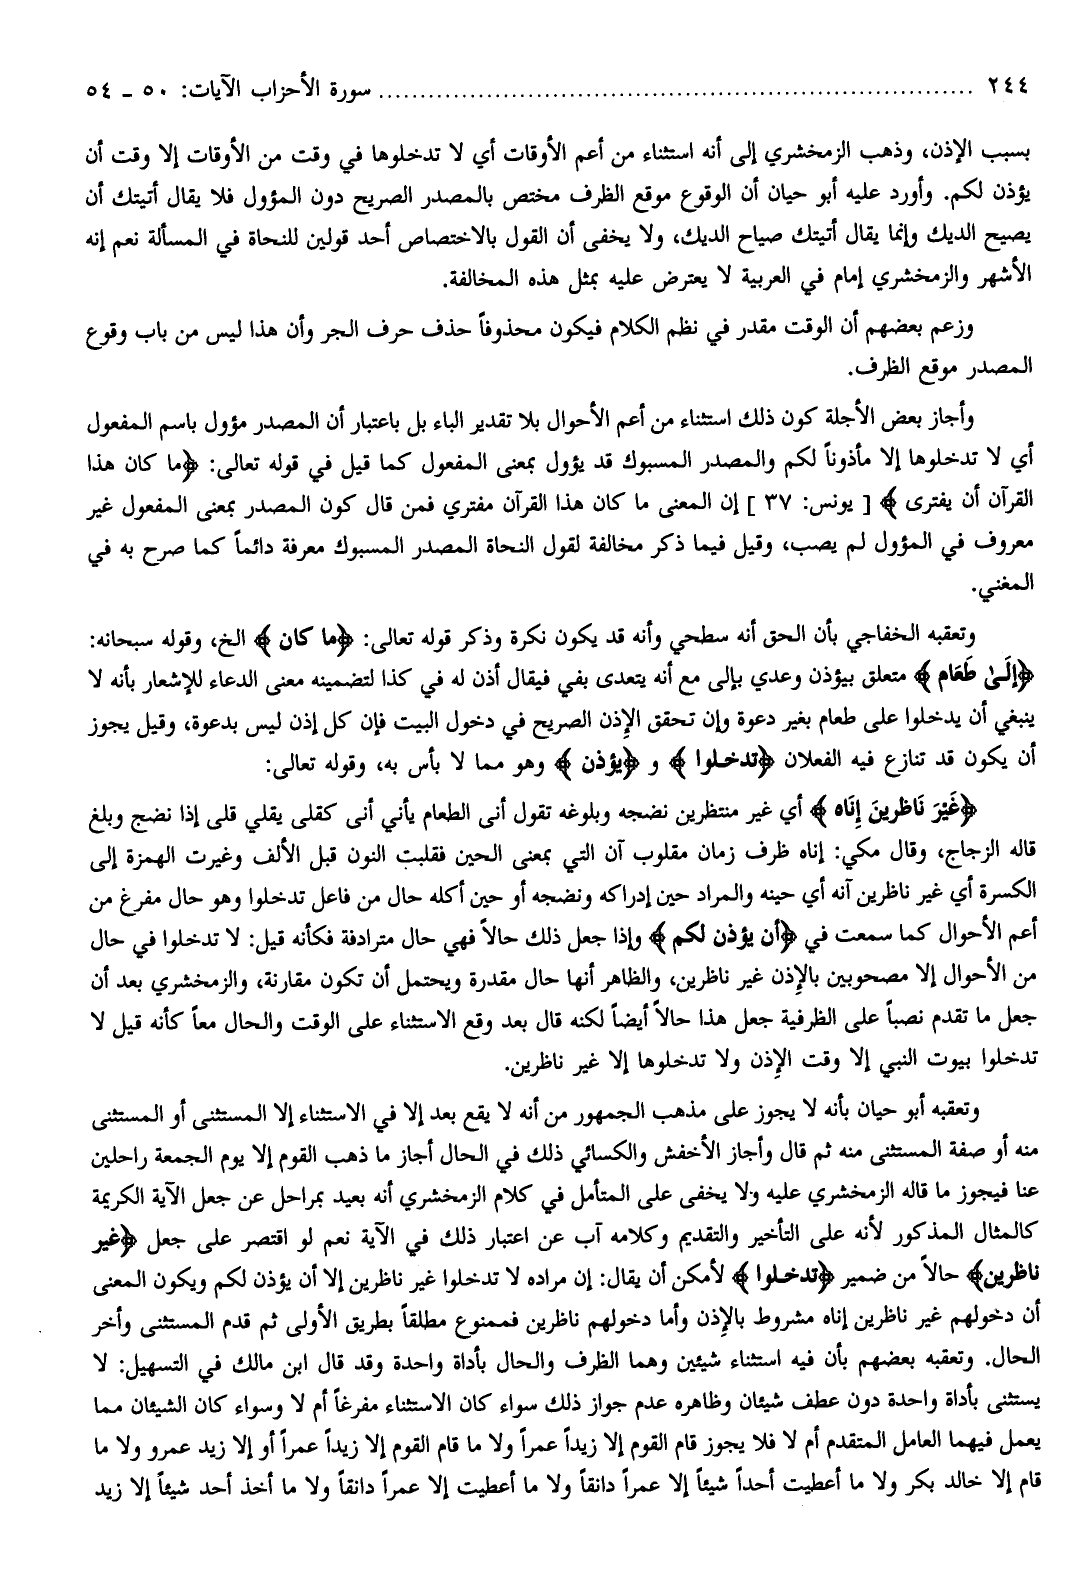 ٢٤٤ ........................................................................ سورة الأحزاب الآيات: ٥٠ ـ ٥٤
بسبب الإذن، وذهب الزمخشري إلى أنه استثناء من أعم الأوقات أي لا تدخلوها في وقت من الأوقات إلا وقت أن
يؤذن لكم. وأورد عليه أبو حيان أن الوقوع موقع الظرف مختص بالمصدر الصريح دون المؤول فلا يقال أتيتك أن
يصيح الديك وإنما يقال أتيتك صياح الديك، ولا يخفى أن القول بالاختصاص أحد قولين للنحاة في المسألة نعم إنه
الأشهر والزمخشري إمام في العربية لا يعترض عليه بمثل هذه المخالفة.
وزعم بعضهم أن الوقت مقدر في نظم الكلام فيكون محذوفاً حذف حرف الجر وأن هذا ليس من باب وقوع
المصدر موقع الظرف.
وأجاز بعض الأجلة كون ذلك استثناء من أعم الأحوال بلا تقدير الباء بل باعتبار أن المصدر مؤول باسم المفعول
أي لا تدخلوها إلا مأذوناً لكم والمصدر المسبوك قد يؤول بمعنى المفعول كما قيل في قوله تعالى: ﴿ما كان هذا
القرآن أن يفترى﴾ [ يونس: ٣٧ ] إن المعنى ما كان هذا القرآن مفتري فمن قال كون المصدر بمعنى المفعول غير
معروف في المؤول لم يصب، وقيل فيما ذكر مخالفة لقول النحاة المصدر المسبوك معرفة دائماً كما صرح به في
المغني.
وتعقبه الخفاجي بأن الحق أنه سطحي وأنه قد يكون نكرة وذكر قوله تعالى: ﴿ما كان﴾ الخ، وقوله سبحانه:
﴿إِلَىٰ طَعَام﴾ متعلق بيؤذن وعدي بإلى مع أنه يتعدى بفي فيقال أذن له في كذا لتضمينه معنى الدعاء للإشعار بأنه لا
ينبغي أن يدخلوا على طعام بغير دعوة وإن تحقق الإذن الصريح في دخول البيت فإن كل إذن ليس بدعوة، وقيل يجوز
أن يكون قد تنازع فيه الفعلان ﴿تدخلوا﴾ و ﴿يؤذن﴾ وهو مما لا بأس به، وقوله تعالى:
﴿غَيْرَ نَاظرينَ إنَاه﴾ أي غير منتظرين نضجه وبلوغه تقول أنى الطعام يأني أنى كقلى يقلي قلى إذا نضج وبلغ
قاله الزجاج، وقال مكي: إناه ظرف زمان مقلوب آن التي بمعنى الحين فقلبت النون قبل الألف وغيرت الهمزة إلى
الكسرة أي غير ناظرين آنه أي حينه والمراد حين إدراكه ونضجه أو حين أكله حال من فاعل تدخلوا وهو حال مفرغ من
أعم الأحوال كما سمعت في ﴿أن يؤذن لكم﴾ وإذا جعل ذلك حالاً فهي حال مترادفة فكأنه قيل: لا تدخلوا في حال
من الأحوال إلا مصحوبين بالإذن غير ناظرين، والظاهر أنها حال مقدرة ويحتمل أن تكون مقارنة، والزمخشري بعد أن
جعل ما تقدم نصباً على الظرفية جعل هذا حالاً أيضاً لكنه قال بعد وقع الاستثناء على الوقت والحال معاً كأنه قيل لا
تدخلوا بيوت النبي إلا وقت الإذن ولا تدخلوها إلا غير ناظرين.
وتعقبه أبو حيان بأنه لا يجوز على مذهب الجمهور من أنه لا يقع بعد إلا في الاستثناء إلا المستثنى أو المستثنى
منه أو صفة المستثنى منه ثم قال وأجاز الأخفش والكسائي ذلك في الحال أجاز ما ذهب القوم إلا يوم الجمعة راحلين
عنا فيجوز ما قاله الزمخشري عليه ولا يخفى على المتأمل في كلام الزمخشري أنه بعيد بمراحل عن جعل الآية الكريمة
كالمثال المذكور لأنه على التأخير والتقديم وكلامه آب عن اعتبار ذلك في الآية نعم لو اقتصر على جعل ﴿غير
ناظرين﴾ حالاً من ضمير ﴿تدخلوا﴾ لأمكن أن يقال: إن مراده لا تدخلوا غير ناظرين إلا أن يؤذن لكم ويكون المعنى
أن دخولهم غير ناظرين إناه مشروط بالإذن وأما دخولهم ناظرين فممنوع مطلقاً بطريق الأولى ثم قدم المستثنى وأخر
الحال. وتعقبه بعضهم بأن فيه استثناء شيئين وهما الظرف والحال بأداة واحدة وقد قال ابن مالك في التسهيل: لا
يستثنى بأداة واحدة دون عطف شيئان وظاهره عدم جواز ذلك سواء كان الاستثناء مفرغاً أم لا وسواء كان الشيئان مما
يعمل فيهما العامل المتقدم أم لا فلا يجوز قام القوم إلا زيداً عمراً ولا ما قام القوم إلا زيداً عمراً أو إلا زيد عمرو ولا ما
قام إلا خالد بكر ولا ما أعطيت أحداً شيئاً إلا عمراً دانقاً ولا ما أعطيت إلا عمراً دانقاً ولا ما أخذ أحد شيئاً إلا زيد